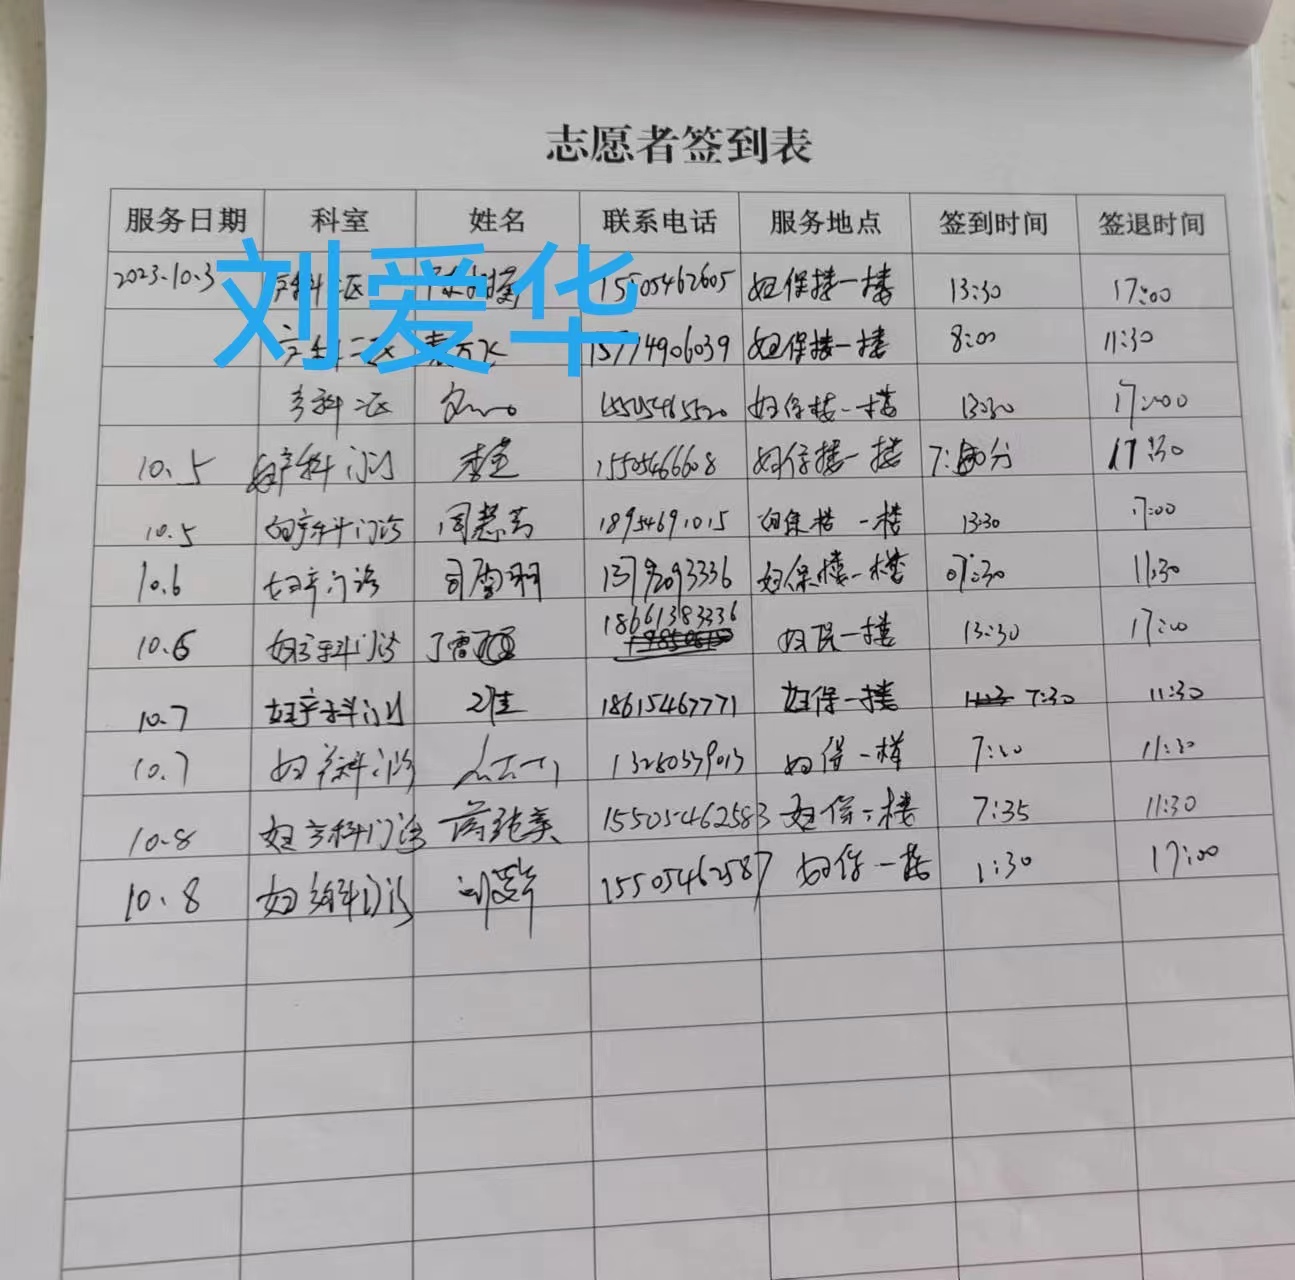 志愿者签到表
服务日期 科室 姓名 联系电话 服务地点 签到时间 签退时间
刘爱华
2023.10.3 产科二区 15505462605 妇保楼一楼 13:30 17:00
产科二区 15774906039 妇保楼一楼 8:00 11:30
产科二区 妇保楼一楼 13:30 17:00
10.5 妇产科门诊 15505466608 妇保楼一楼 17:30
10.5 妇产科门诊 周慧芳 18954691015 妇保楼一楼 13:30 17:00
10.6 妇产门诊 司雪羽 13792093336 妇保楼一楼 07:30 11:30
10.6 妇产科门诊 18661383336 妇保一楼 13:30 17:00
10.7 妇产科门诊 18615467771 妇保一楼 7:30 11:30
10.7 妇产科门诊 13280379013 妇保一楼 11:30
10.8 妇产科门诊 15505462583 妇保一楼 7:35 11:30
10.8 妇产科门诊 刘爱华 15505462587 妇保一楼 1:30 17:00